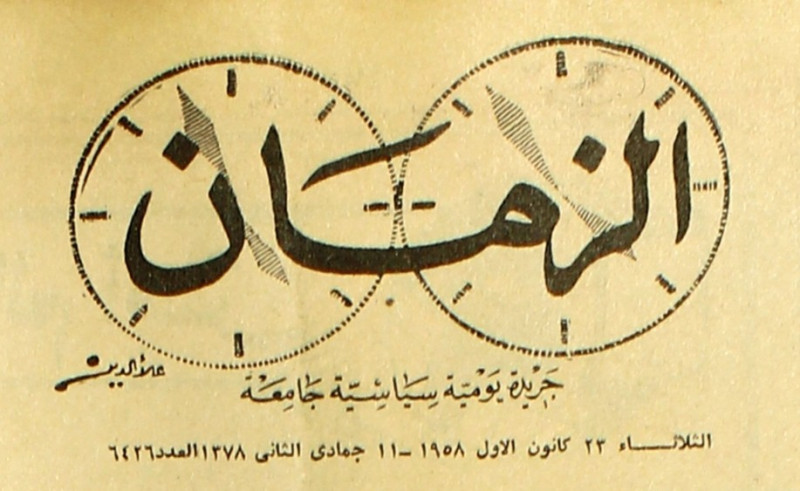 الزمان
علاء الدين
جَريدة يَوميّة سِيَاسِيّة جَامِعَة
الثلاثـــاء ٢٣ كانون الاول ١٩٥٨ – ١١ جمادى الثانى ١٣٧٨ العدد ٦٤٢٦